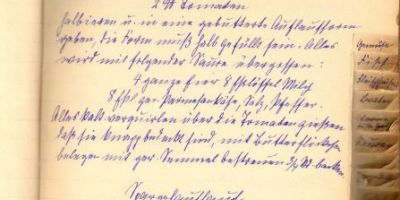 2 ℔ Tomaten
halbieren u. in eine gebutterte Auflaufform
geben, die Form muß halb gefüllt sein. Alles
wird mit folgender Sauce übergossen:
4 ganze Eier 8 Eßlöffel Milch
8 Eßl ger. Parmesankäse, Salz, Pfeffer.
Alles kalt verquirlen über die Tomaten gießen
daß sie knapp bedeckt sind, mit Butterflöckchen
belegen mit ger Semmel bestreuen ¾ St. backen
Gemüse
Fisch
Braten